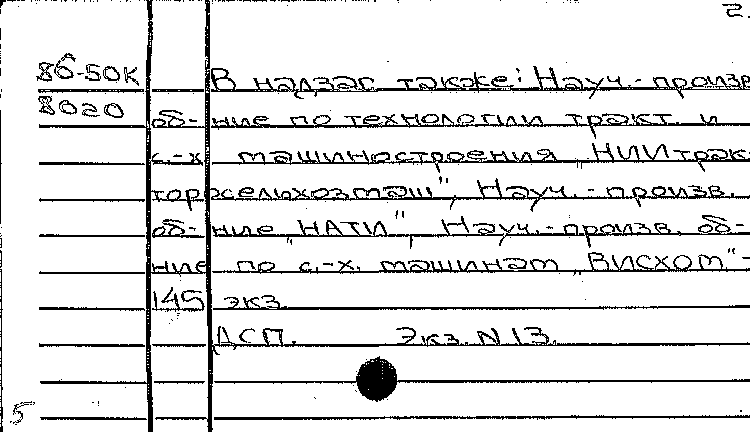 2.
86-50К В надзаг. также: Науч.-произв
8020 об-ние по технологии тракт. и
с.-х. машиностроения „НИИтрак-
торосельхозмаш", Науч.-произв.
об-ние „НАТИ", Науч.-произв. об-
ние по с.-х. машинам „ВИСХОМ"-
145 экз.
ДСП. Экз. N 13.
5